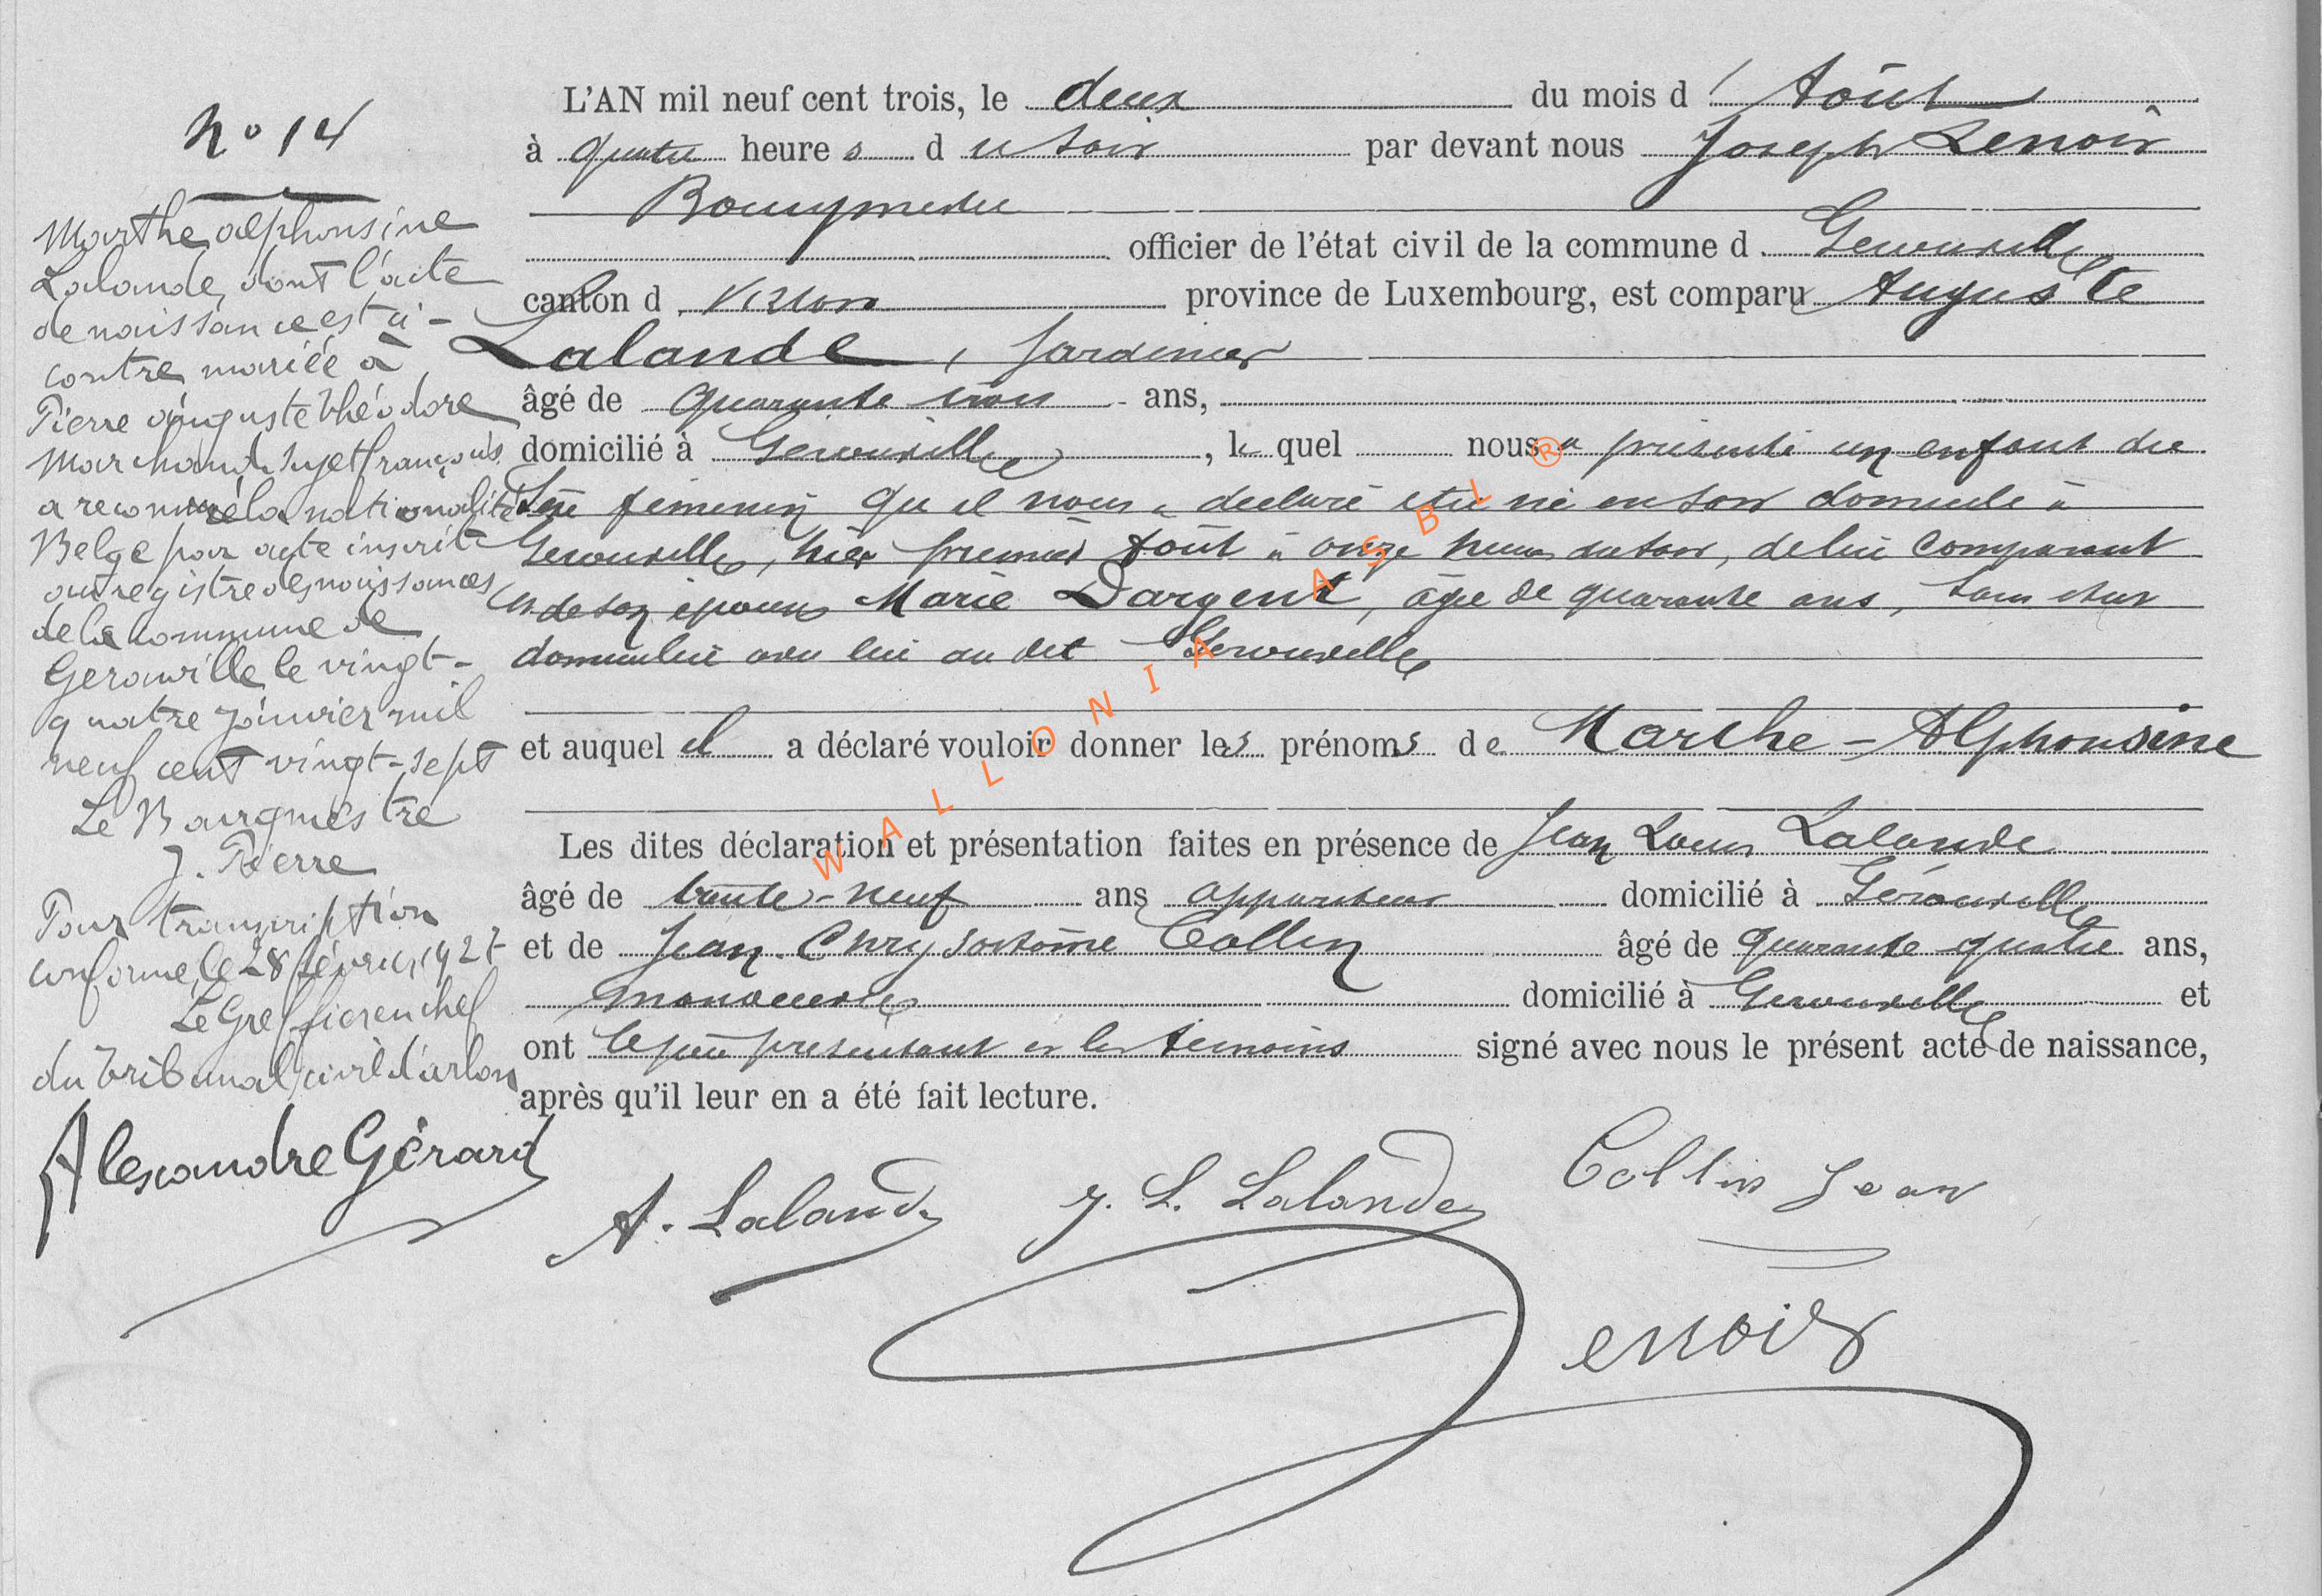 N° 14
Marthe Alphonsine
Lalande, dont l'acte
de naissance est ci-
contre mariée à
Pierre Auguste Théodore
Marchand, sujet français
a reconnu la nationalité
Belge par acte inscrit
au registre des naissances
de la commune de
Gerouville le vingt-
quatre janvier mil
neuf cent vingt-sept
Le Bourgmestre
J. Pierre
Pour transcription
conforme, le 28 février 1927
Le Greffier en chef
du Tribunal civil d'Arlon
Alexandre Gérard
L'AN mil neuf cent trois, le deux du mois d' Août
à quatre heures du soir par devant nous Joseph Lenoir
Bourgmestre
officier de l'état civil de la commune d Gerouville
canton d Virton province de Luxembourg, est comparu Auguste
Lalande, Jardinier
âgé de quarante trois ans,
domicilié à Gerouville, le quel nous a présenté un enfant du
sexe féminin qu'il nous a déclaré être né en son domicile à
Gerouville, hier premier Août à onze heures du soir, de lui comparant
et de son épouse Marie Dargent, âgée de quarante ans, sans état
domiciliée avec lui au dit Gerouville
et auquel il a déclaré vouloir donner les prénoms de Marthe-Alphonsine
Les dites déclaration et présentation faites en présence de Jean Louis Lalande
âgé de trente-neuf ans appariteur domicilié à Gérouville
et de Jean Chrysostôme Collin âgé de quarante quatre ans,
manoeuvre domicilié à Gerouville et
ont le père présentant et les témoins signé avec nous le présent acte de naissance,
après qu'il leur en a été fait lecture.
A. Lalande J. L. Lalande Collin Jean
Lenoir
WALLONIA ASBL ®